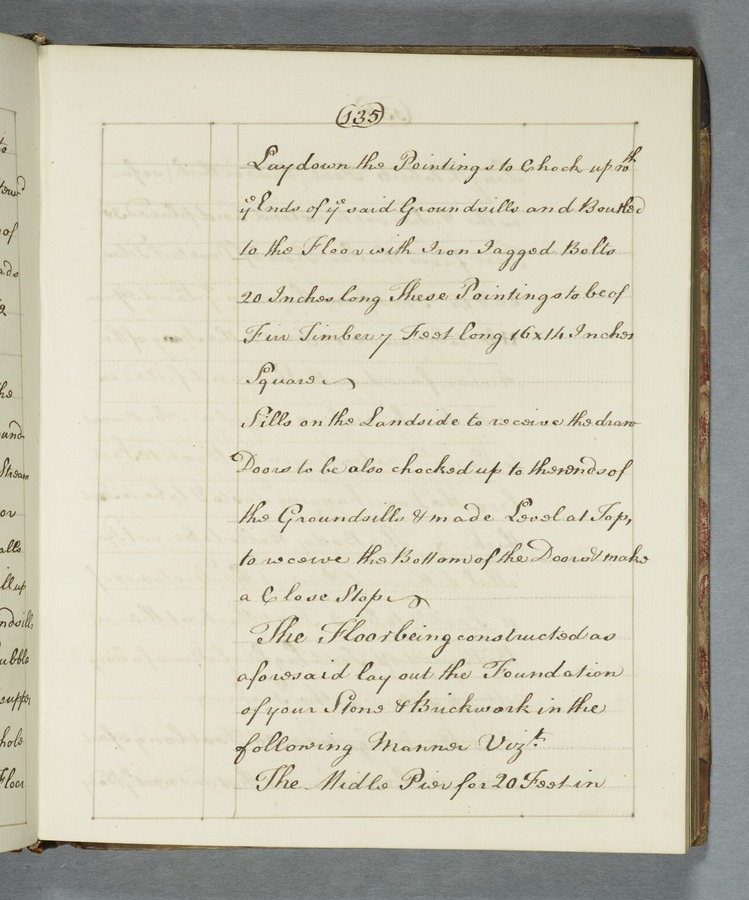 135
Lay down the Pointings to Chock up wth
ye Ends of ye said Groundsills and Boulted
to the Floor with Iron Jagged Bolts
20 Inches long These Pointings to be of
Firr Timber 7 Feet long 16x14 Inches
Square
Sills on the Landside to receive the draw
Doors to be also chocked up to the ends of
the Groundsills & made Level at Top,
to receive the Bottom of the Doors & make
a Close Stop
The Floor being constructed as
aforesaid lay out the Foundation
of your Stone & Brickwork in the
following Manner Vizt.
The Midle Pier for 20 Feet in